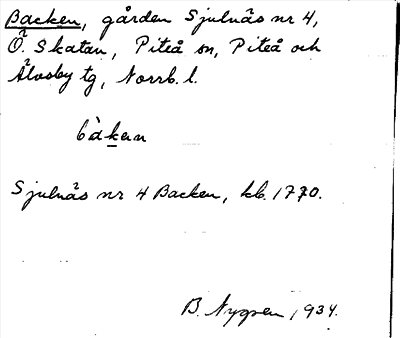 Backen, gården Sjulnäs nr 4,
Ö. Skatan, Piteå sn, Piteå och
Älvsby tg, Norrb. l.
bàkan
Sjulnäs nr 4 Backen, kb. 1770.
B. Nygren, 1934.